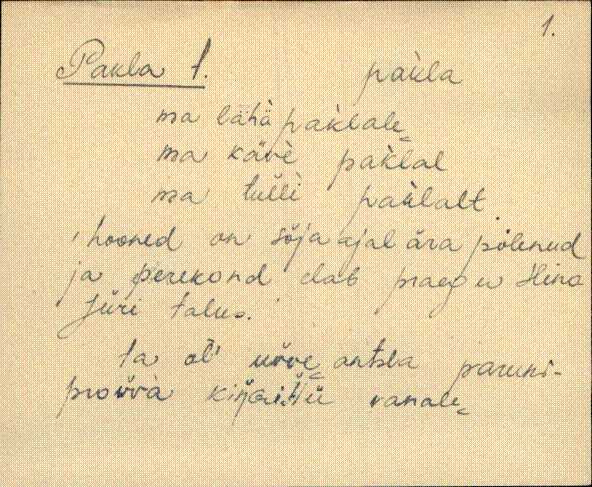 1.
Pakla t. pàkla
ma lähä pàklale
ma kävè pàklal
ma tulli pàklalt
hooned on sõja ajal ära põlenud
ja perekond elab praegu Hina
Jüri talus.
ta oĺl vӧӧ antsla paruni-
prowwa
vanale